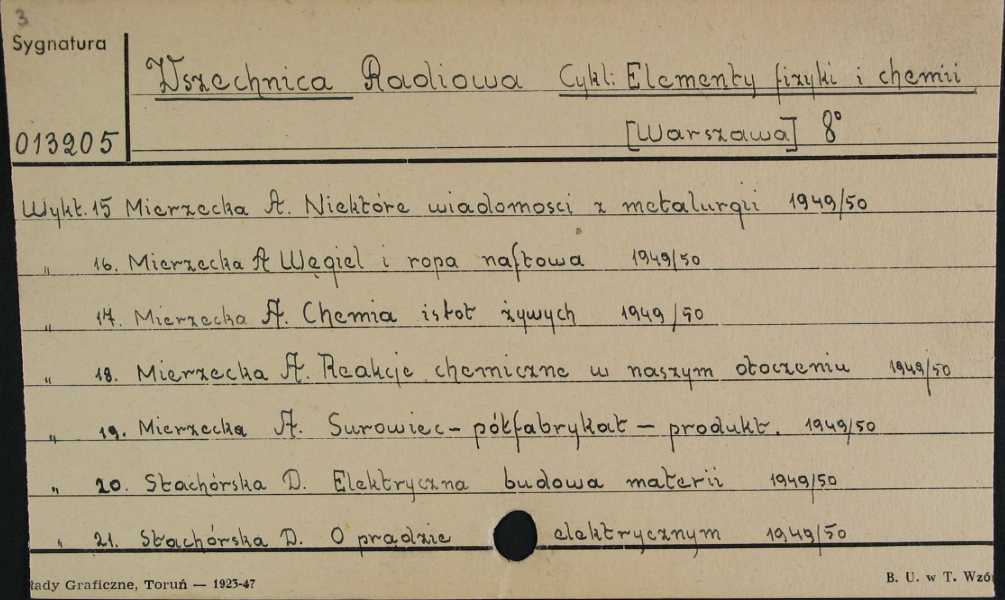 3
Sygnatura
Wszechnica Radiowa Cykl: Elementy fizyki i chemii
013205 [Warszawa] 8°
Wykt. 15 Mierzecka A. Niektóre wiadomosci z metalurgii 1949/50
" 16. Mierzecka A Węgiel i ropa naftowa 1949/50
" 17. Mierzecka A. Chemia istot żywych 1949/50
" 18. Mierzecka A. Reakcje chemiczne w naszym otoczeniu 1949/50
" 19. Mierzecka A. Surowiec - półfabrykat - produkt. 1949/50
" 20. Stachórska D. Elektryczna budowa materii 1949/50
" 21. Stachórska D. O prądzie elektrycznym 1949/50
łady Graficzne, Toruń — 1923-47 B. U. w T. Wzór